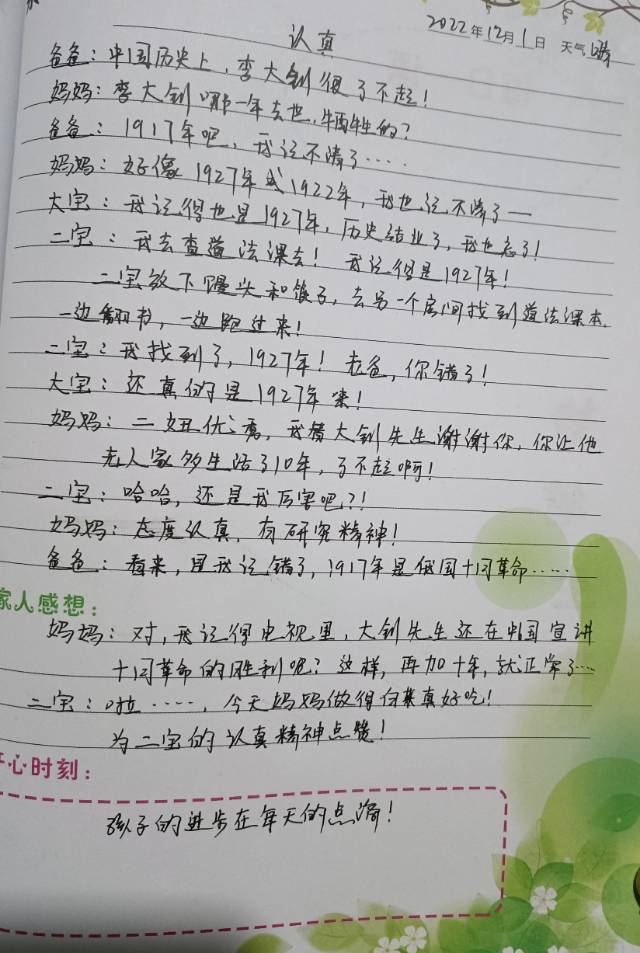 2022年12月1日 天气 晴
认真
爸爸：中国历史上，李大钊很了不起！
妈妈：李大钊哪一年去世，牺牲的？
爸爸：1917年吧，我记不清了……
妈妈：好像1927年或1922年，我也记不清了—
大宝：我记得也是1927年，历史结业了，我也忘了！
二宝：我去查道法课去！我记得是1927年！
二宝放下馒头和筷子，去另一个房间找到道法课本，
一边翻书，一边跑过来！
二宝：我找到了，1927年！老爸，你错了！
大宝：还真的是1927年来！
妈妈：二妞优秀，我替大钊先生谢谢你，你让他
老人家多生活了10年，了不起啊！
二宝：哈哈，还是我厉害吧？！
妈妈：态度认真，有研究精神！
爸爸：看来，是我记错了，1917年是俄国十月革命……
家人感想：
妈妈：对，我记得电视里，大钊先生还在中国宣讲
十月革命的胜利呢？这样，再加十年，就正常了…
二宝：啦……，今天妈妈做得白菜真好吃！
为二宝的认真精神点赞！
开心时刻：
孩子的进步在每天的点滴！